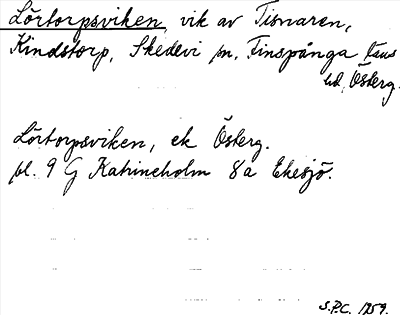 Lörtorpsviken, vik av Tisnaren,
Kindstorp, Skedevi sn, Finspånga läns
hd, Österg.
Lörtorpsviken, ek Österg.
bl. 9 G Katrineholm 8a Ekesjö.
S.P.C. 1959.